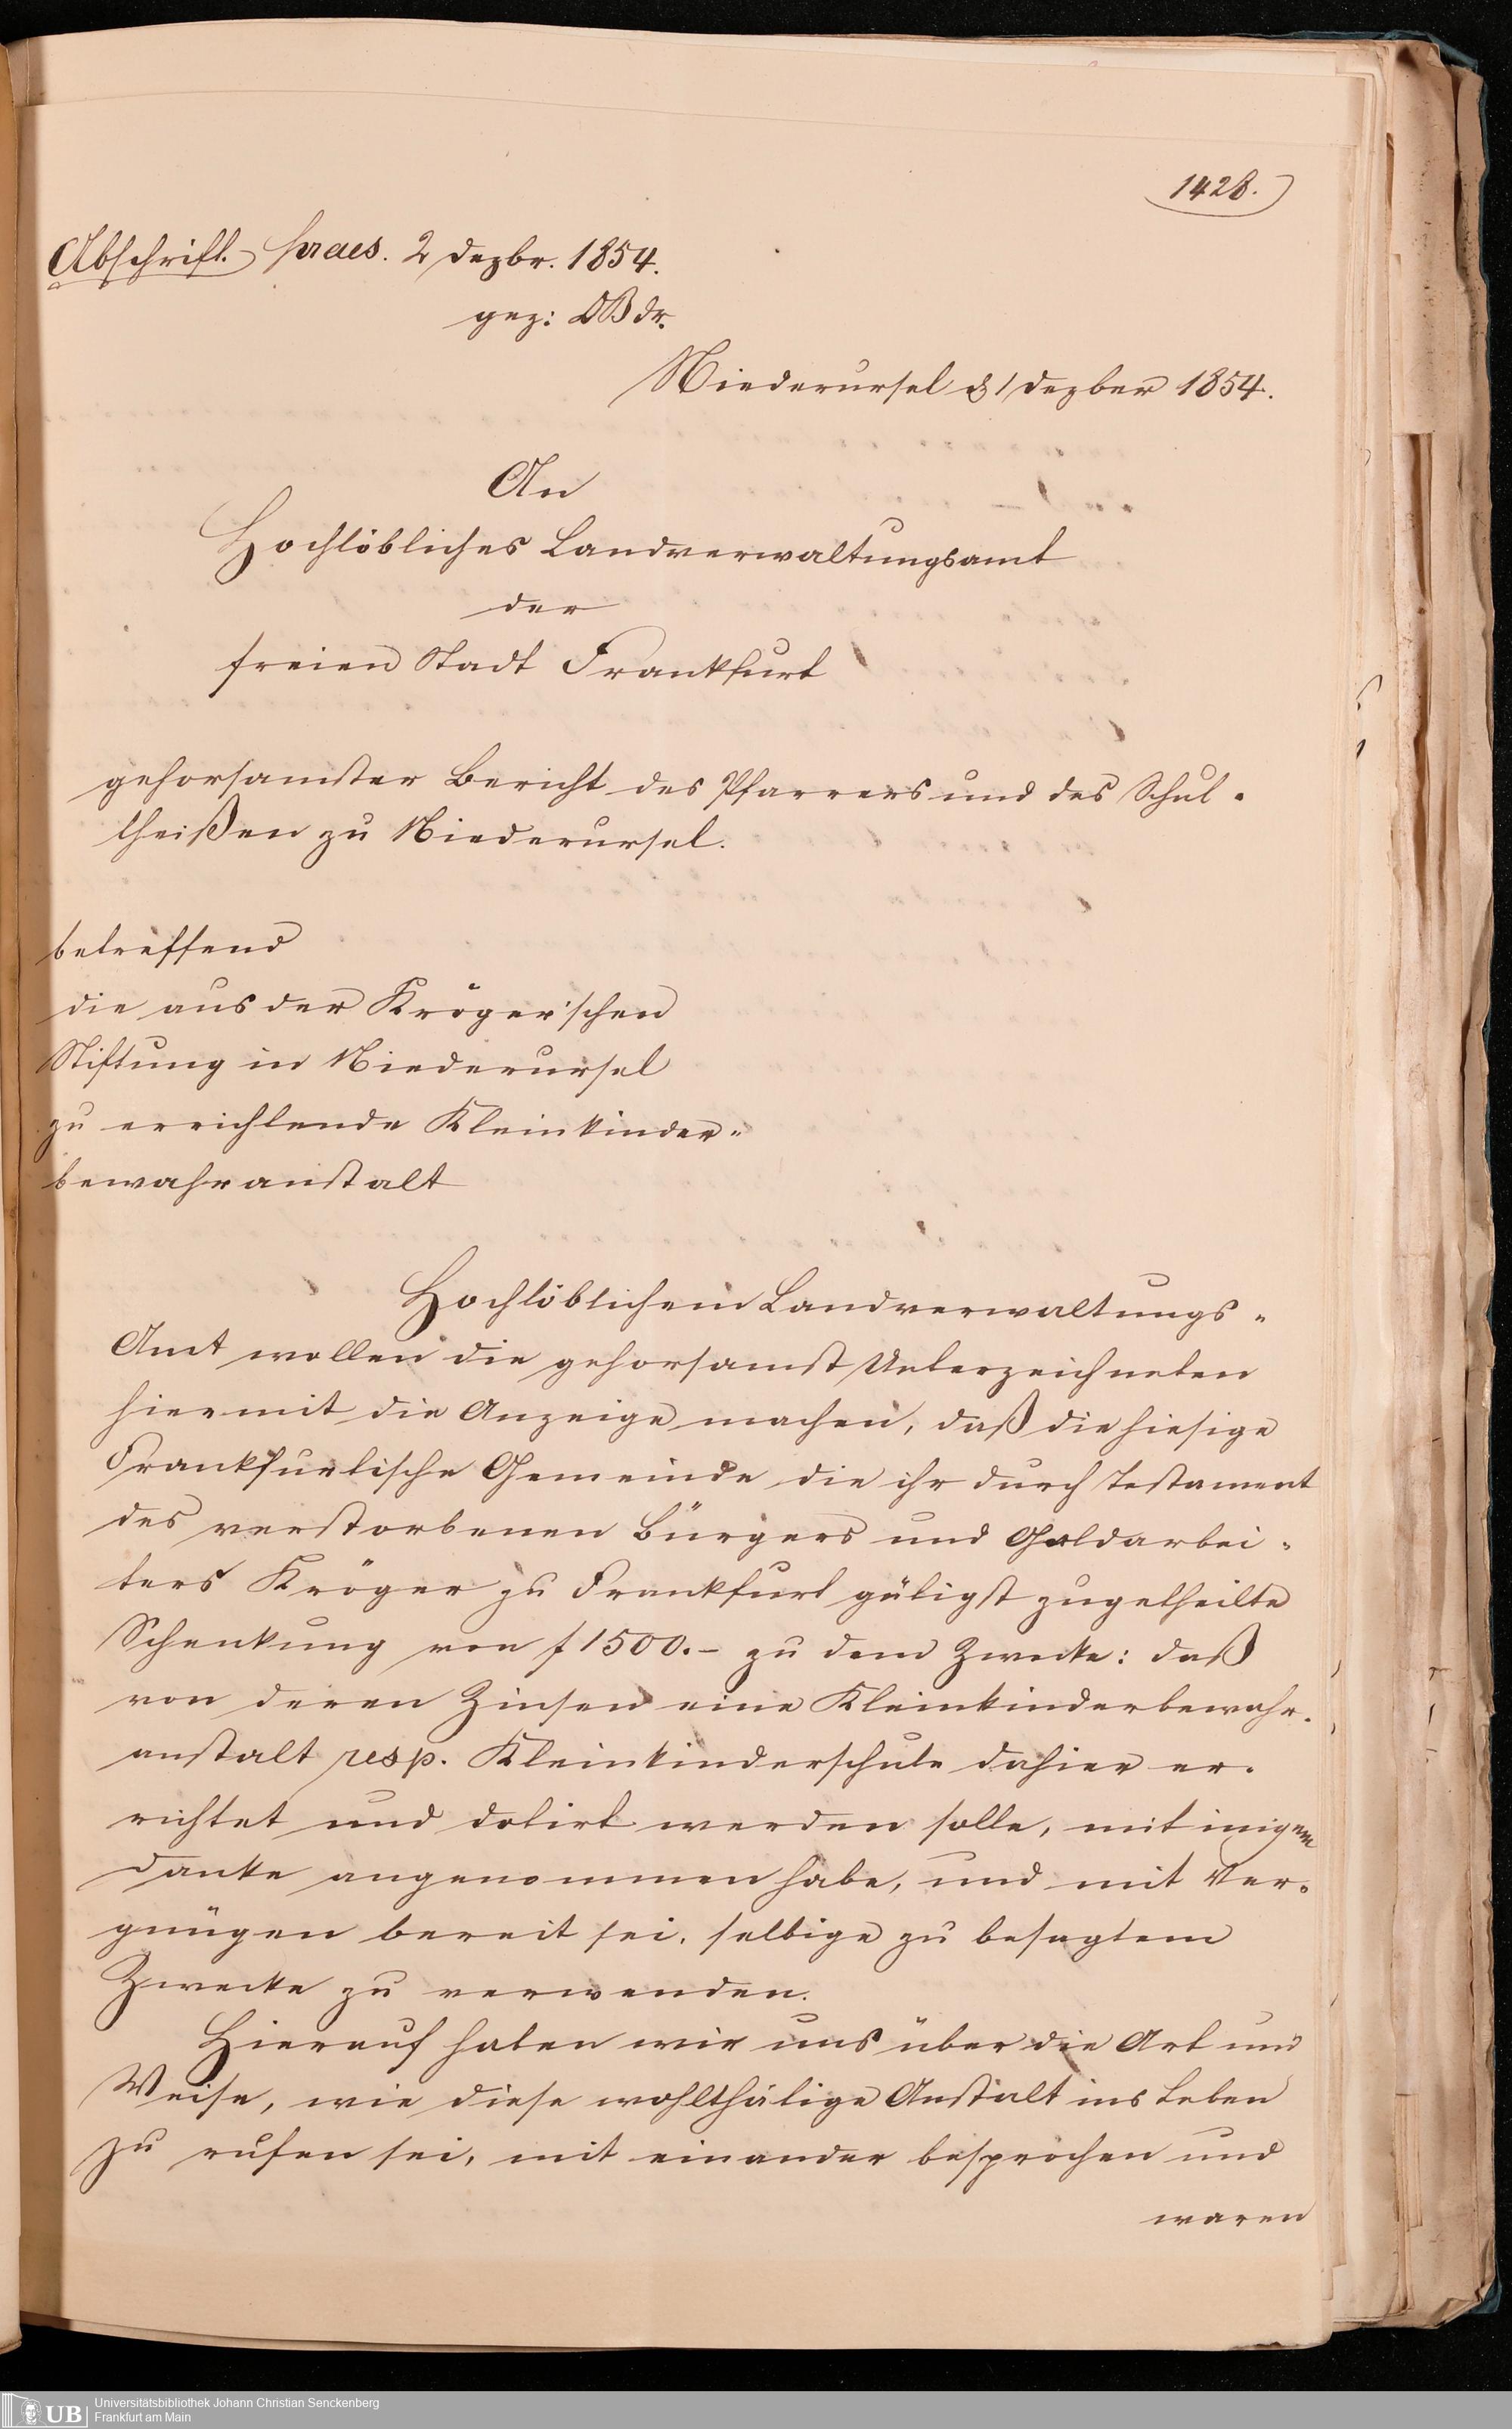 1428.
Abschrift praes. 2 Dezbr. 1854.
gez: DBdr.
Niederursel d 1 Dezber 1854.
An
Hochlöbliches Landverwaltungsamt
der
freien Stadt Frankfurt
gehorsamster Bericht des Pfarrers und des Schul-
theißen zu Niederursel.
betreffend
die aus der Kröger'schen
Stiftung in Niederursel
zu errichtende Kleinkinder-
bewahranstalt
Hochlöblichem Landverwaltungs-
Amt wollen die gehorsamst Unterzeichneten
hiermit die Anzeige machen, daß die hiesige
Frankfurtische Gemeinde die ihr durch Testament
des verstorbenen Bürgers und Goldarbei-
ters Kröger zu Frankfurt gütigst zugetheilte
Schenkung von f 1500.- zu dem Zwecke: daß
von deren Zinsen eine Kleinkinderbewahr-
anstalt resp. Kleinkinderschule dahier er-
richtet und dotirt werden solle, mit inigem
Danke angenommen habe, und mit Ver-
gnügen bereit sei, selbige zu besagtem
Zwecke zu verwenden.
Hierauf haben wir uns über die Art und
Weise, wie diese wohlthätige Anstalt ins Leben
zu rufen sei, mit einander besprochen und
waren
UB
Universitätsbibliothek Johann Christian Senckenberg
Frankfurt am Main